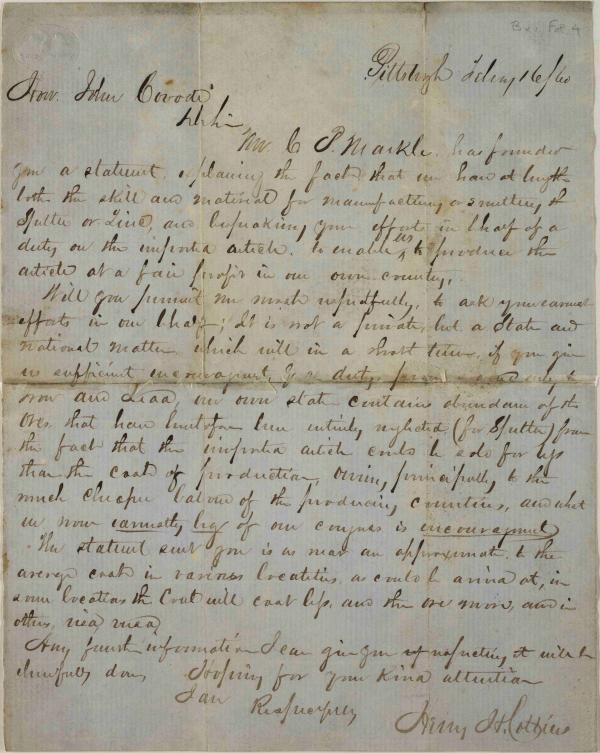 Pittsburgh Feby 16/60
Hon. John Covode
Mr. C. P. Markle, has forwarded
you a statement, explaining the fact that we have at length
both the skill and material for manufacturing or smelting of
Spelter or Zinc, and bespeaking your efforts in behalf of a
duty on the imported article, to enable us to produce the
article at a fair profit in our own country,
Will you permit me most respectfully, to ask your earnest
efforts in our behalf; It is not a private, but a State and
National Matter which will in a short time, if you give
us sufficient encouragement,
Iron and Lead, our own state contains abundance of the
Ores that have heretofore been entirely neglected (for Spelter) from
the fact that the imported article could be sold for less
than the cost of production, owing, principally, to the
much cheaper labour of the producing countries, and what
we now earnestly beg of our congress is encouragement
The statement sent you is as near an approximate to the
average cost in various localities as could be arrived at, in
some locations the Coal will cost less, and the ore more, and in
others, visa versa,
Any further information I can give you respecting it will be
cheerfully done, Hoping for your kind attention
I am
Respectfully
Henry H. Collins